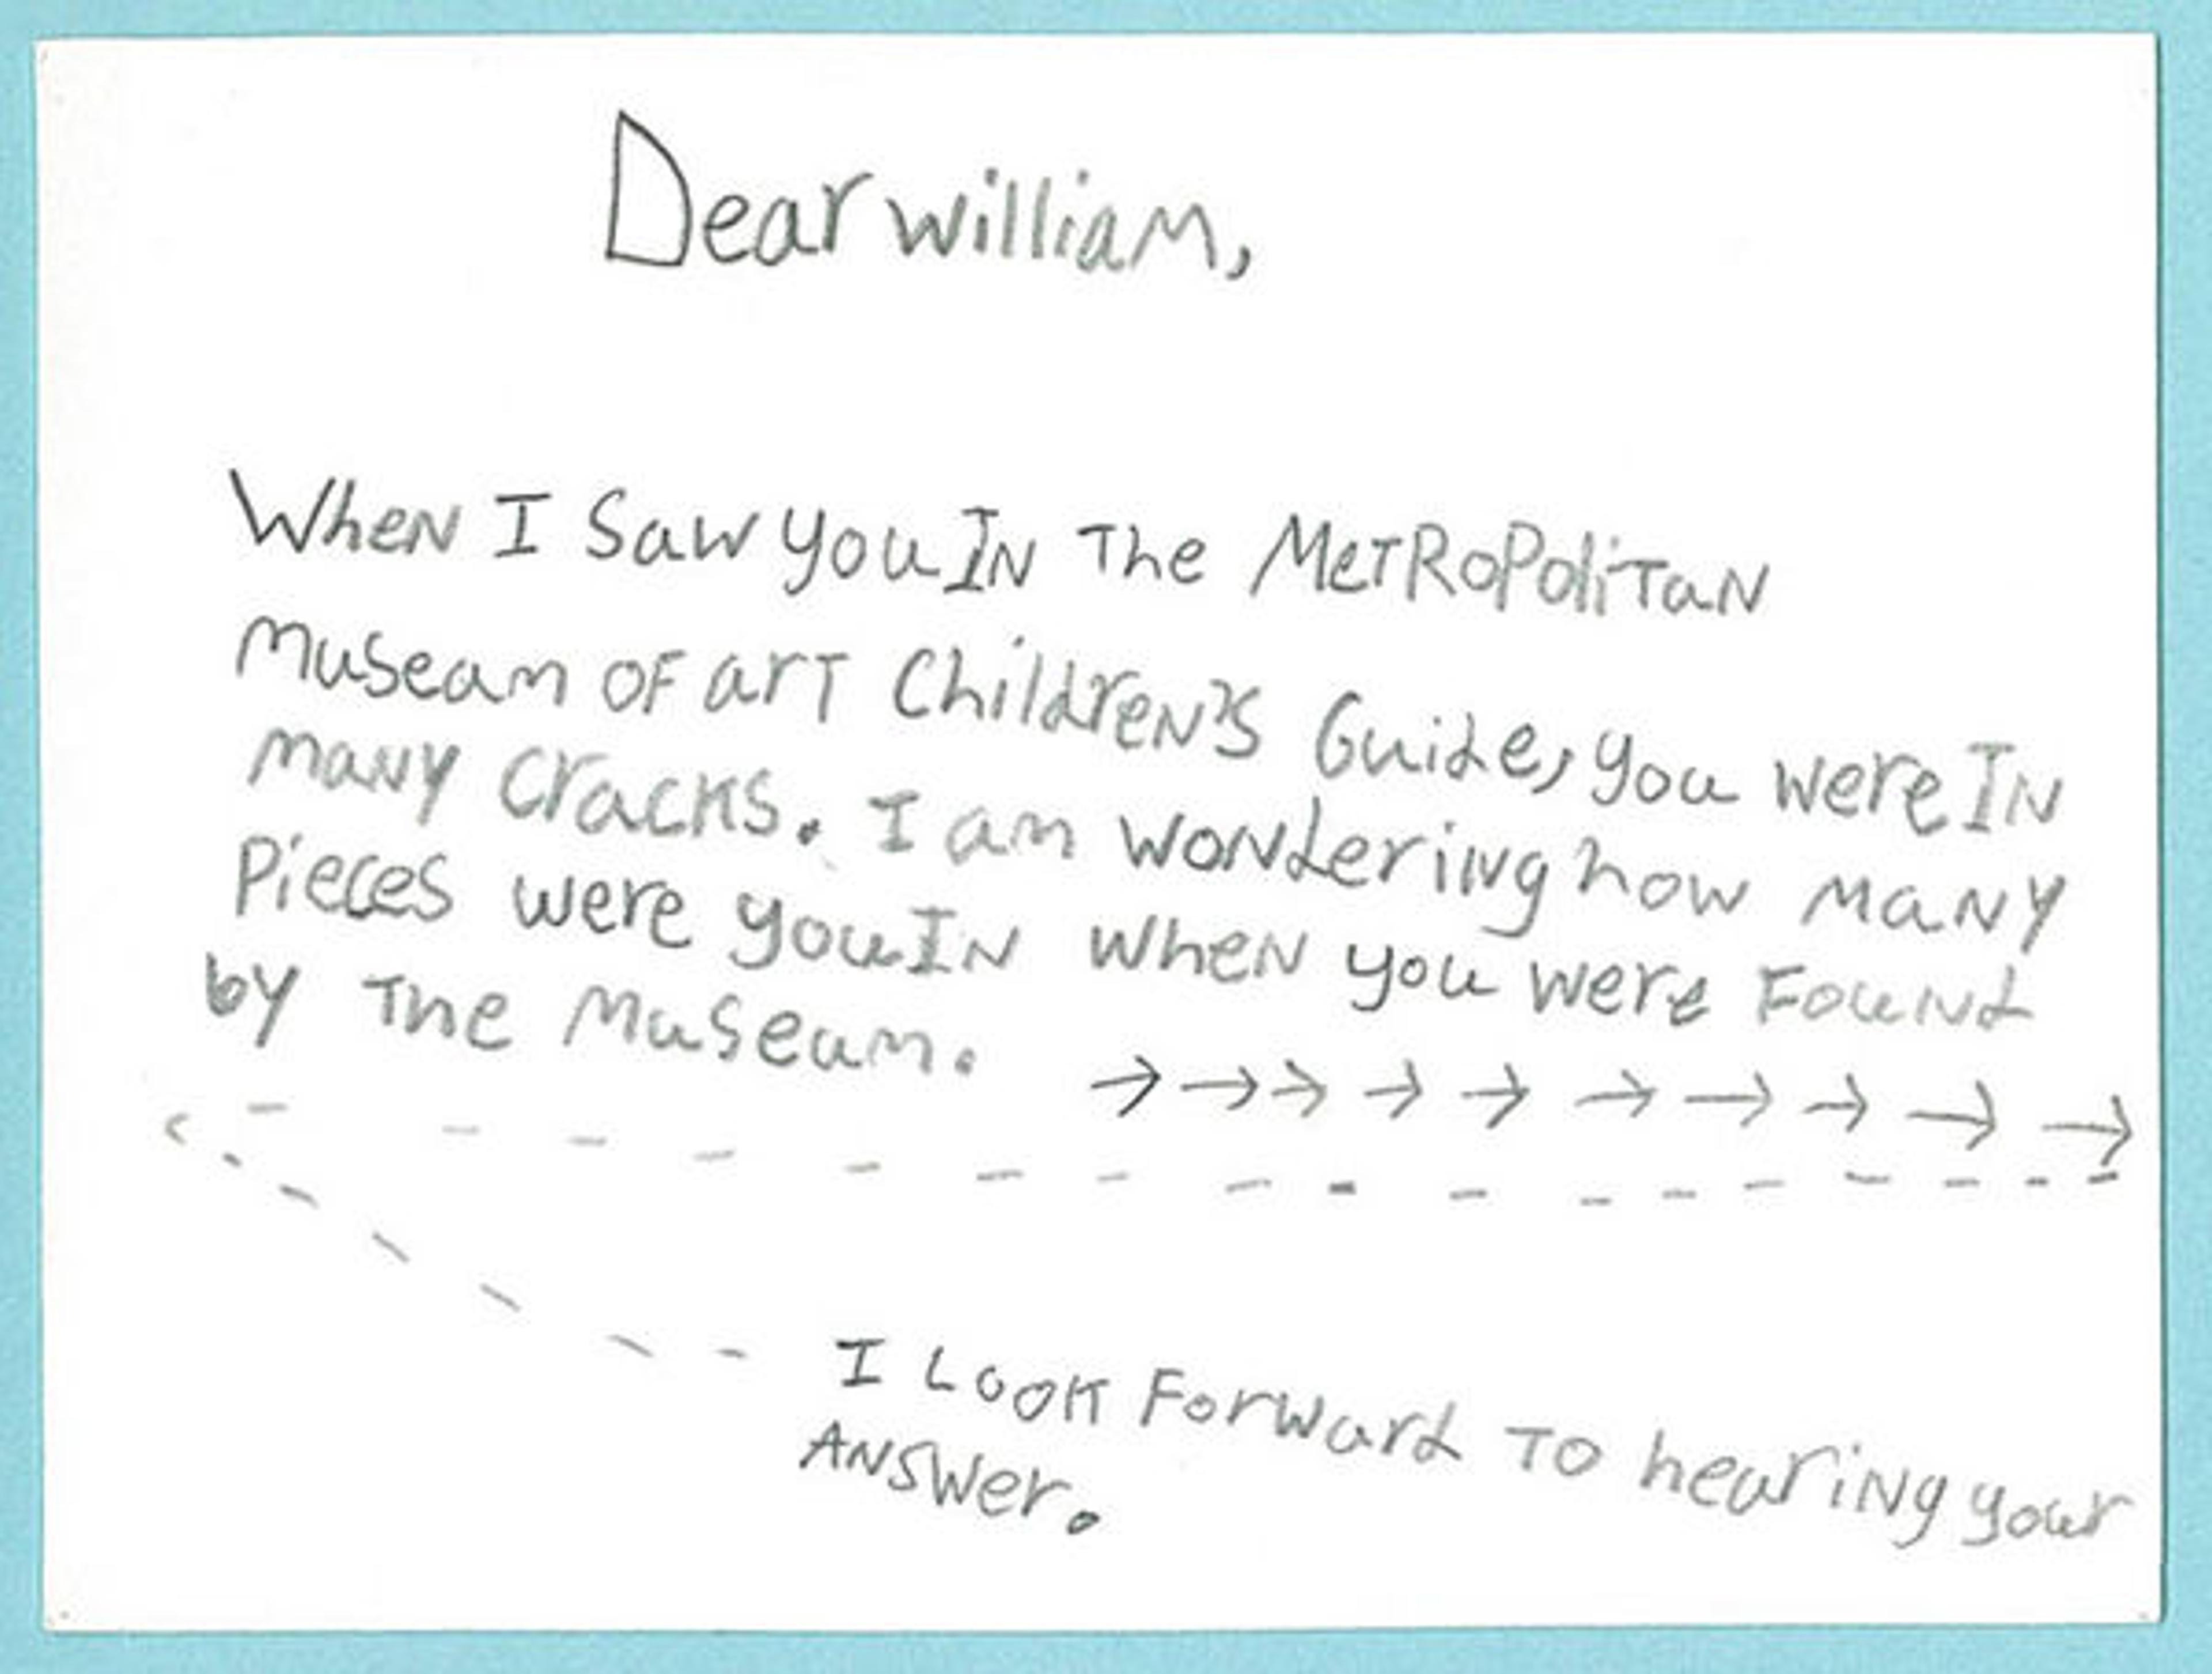 Dear william,
When I Saw you IN The MeTRoPoliTaN
Museam OF arT Children's Guide, you were IN
many Cracks. I am wondering how many
Pieces were you IN when you were Found
by The Museam.
I Look Forward To hearing your
Answer.